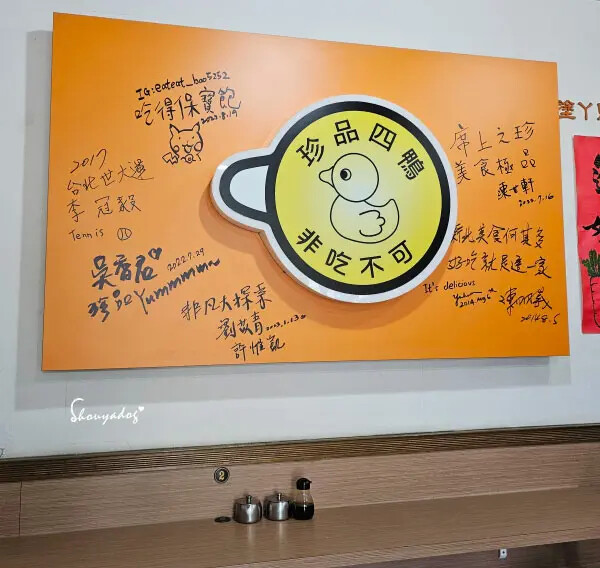 IG:eateat_bao5252
吃得保寶飽
2023.8.19
2017
台北世大運
李冠毅
Tennis
吳彥君
2022.7.29
珍品Yummmmm
非凡大探索
許惟凱
珍品四鴨
非吃不可
席上之珍
美食極品
2022.7.16
新北美食何其多
好吃就是這一家
It's delicious
2014.8.5
Shouyadog
2